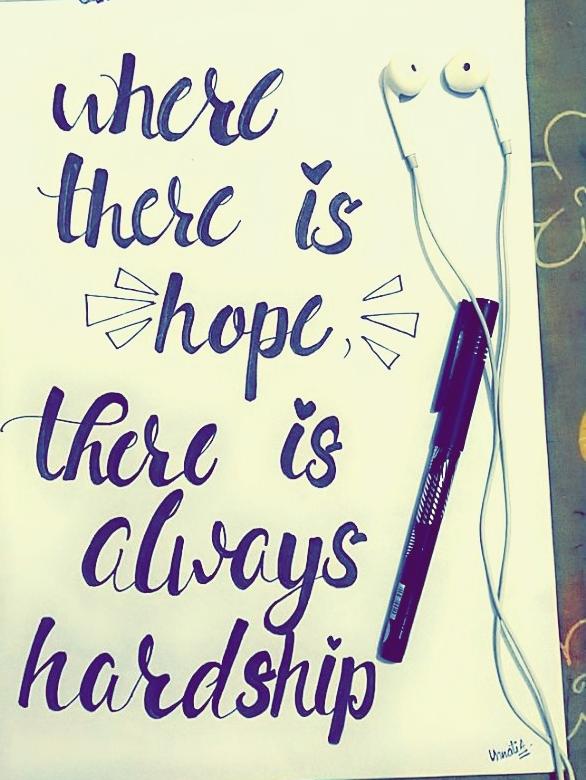 where
there is
hope,
there is
always
hardship